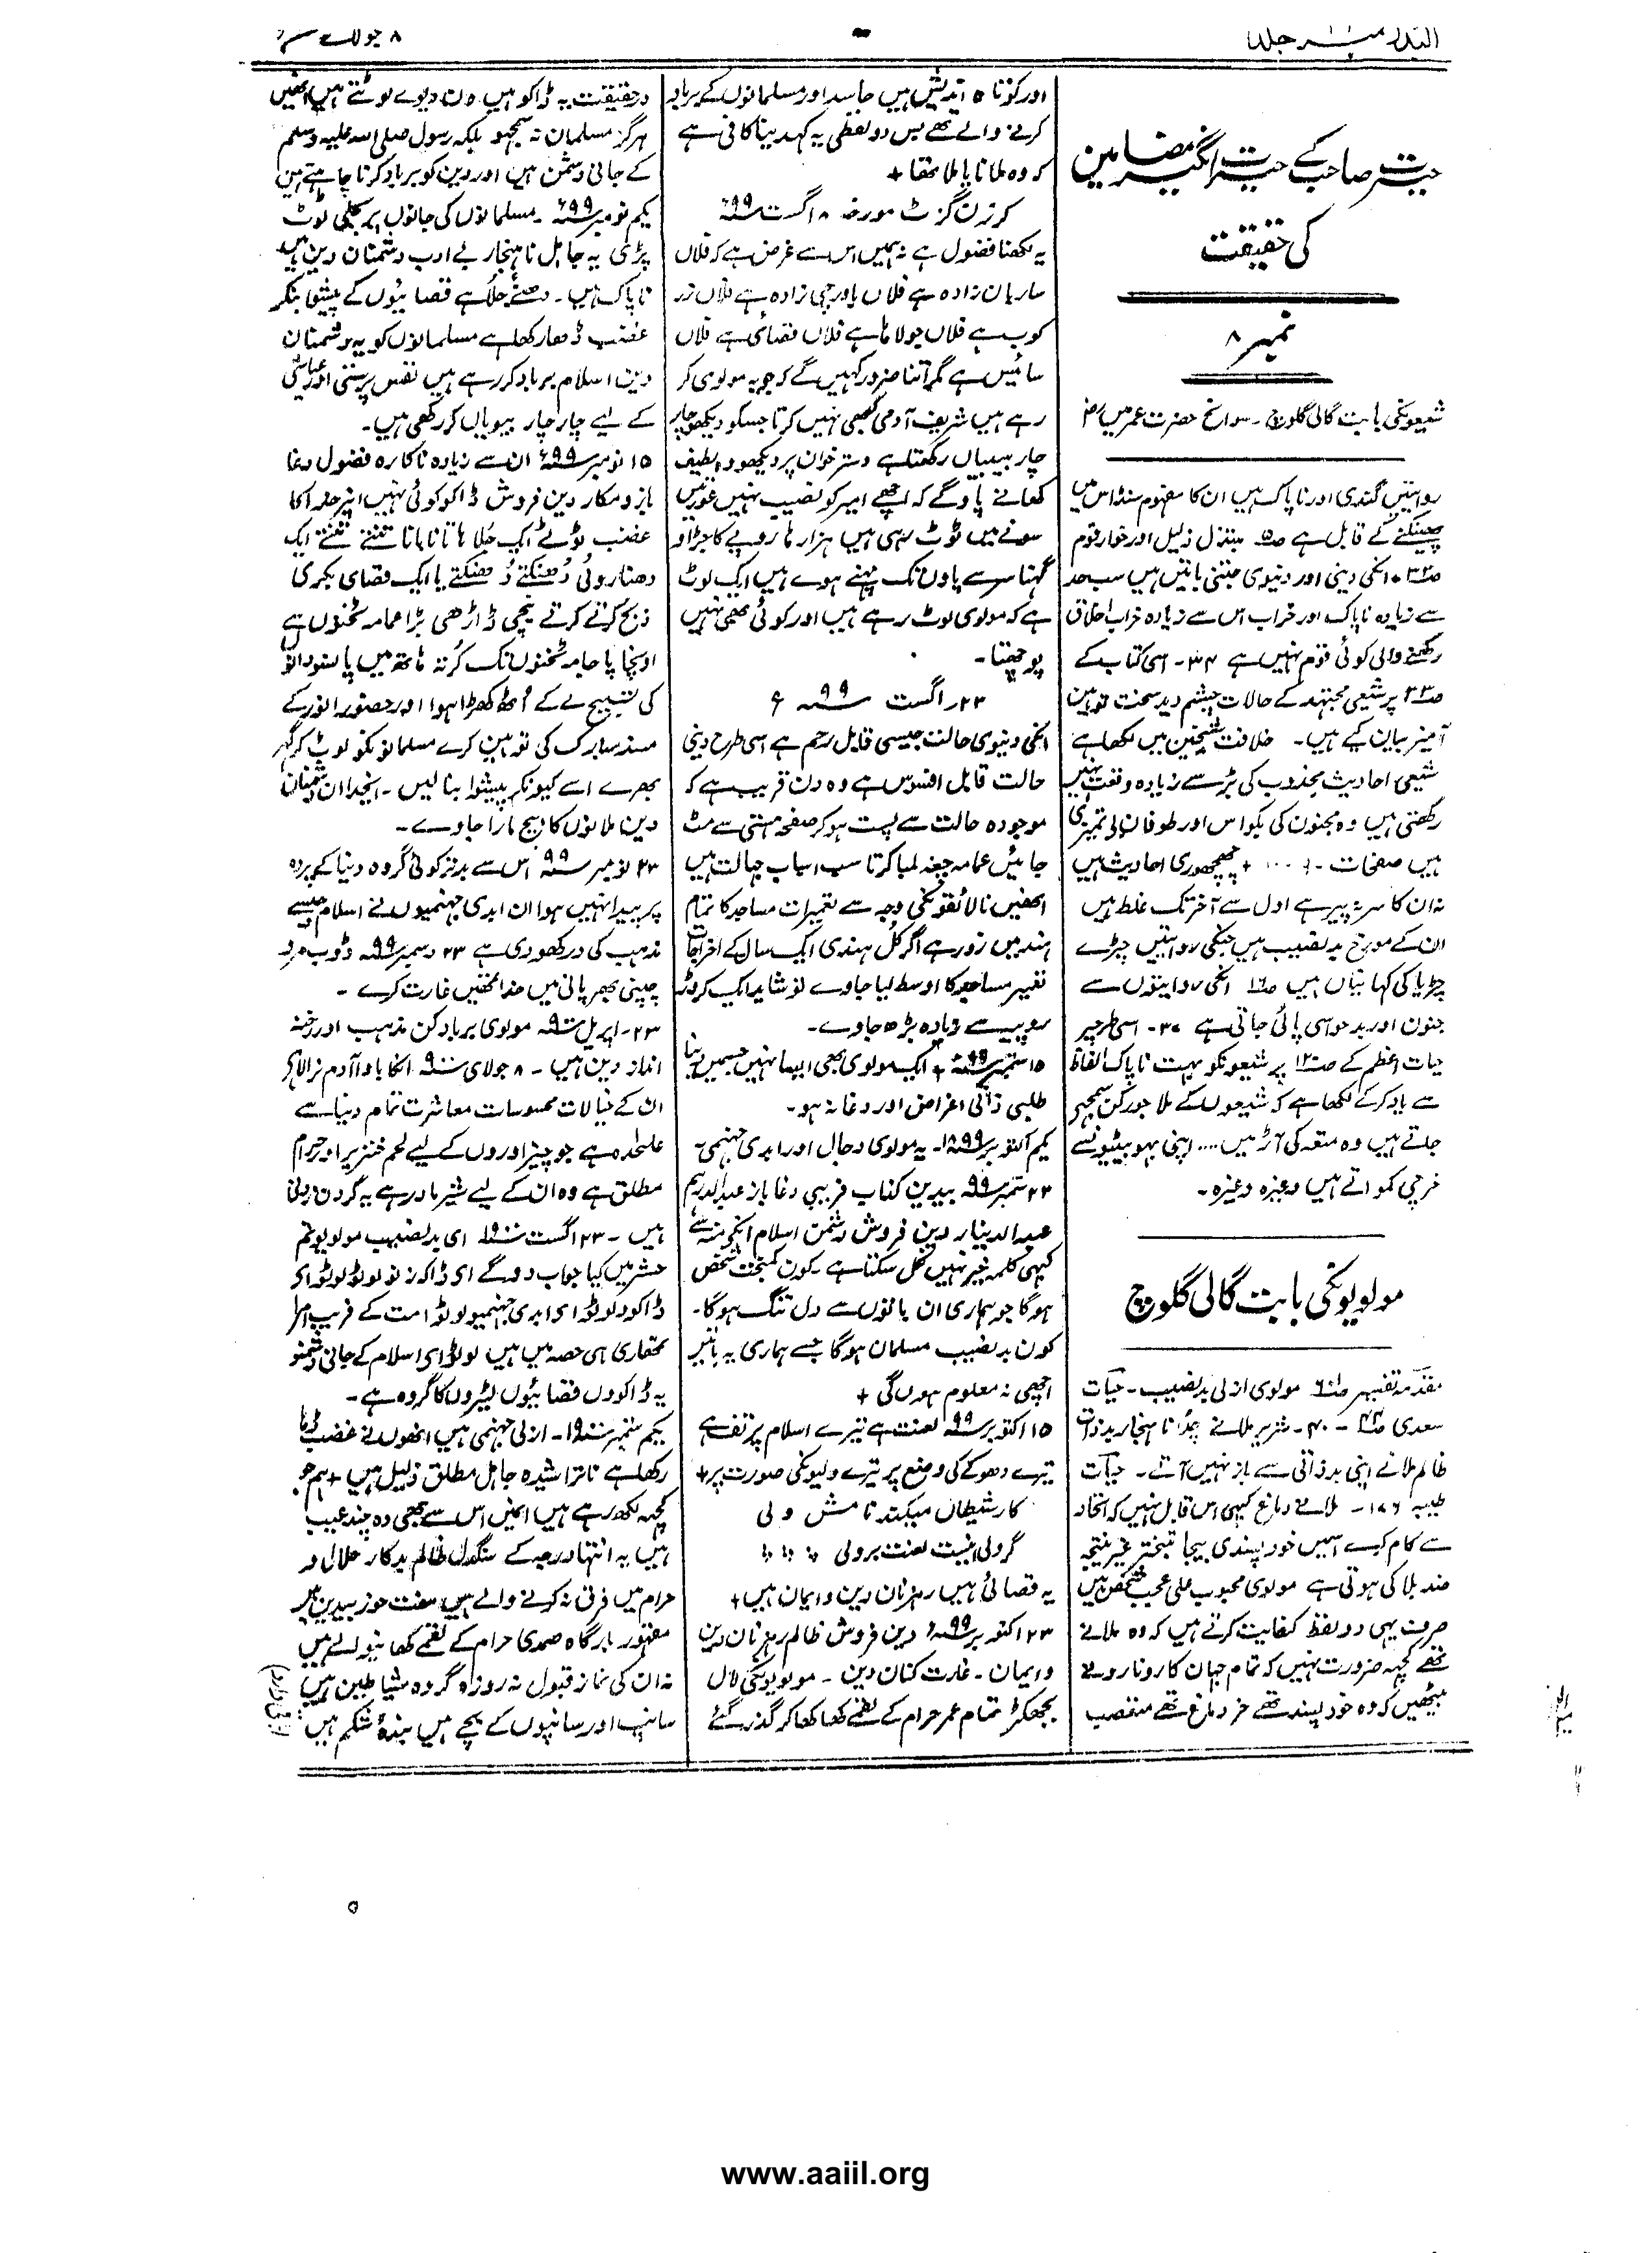 البدر نمبر جلد
۸ جولائی
حیرت صاحب کے حیرت انگیز مضامین
کی حقیقت
نمبر ۸
شیعونکی بابت گالی گلوچ - سوانح حضرت عمر میں
روایتیں گندی اور ناپاک ہیں ان کا مفہوم سنڈاس میں
پھینکنے کے قابل ہے مبتذل ذلیل اور خوار قوم
انکی دینی اور دنیوی جتنی باتیں ہیں سب حد
سے زیادہ ناپاک اور خراب اس سے زیادہ خراب اخلاق
رکھنے والی کوئی قوم نہیں ہے ۳۴ - اسی کتاب کے
پر شیعی مجتہد کے حالات چشم دید سخت توہین
آمیز بیان کیے ہیں - خلافت شیخین میں لکھا ہے
شیعی احادیث مجذوب کی بڑ سے زیادہ وقعت نہیں
رکھتی ہیں وہ مجنون کی بکواس اور طوفان بے تمیزی
ہیں صفحات - + چھچھوری احادیث ہیں
نہ ان کا سر نہ پیر ہے اول سے آخر تک غلط ہیں
ان کے مورخ بدنصیب ہیں جنکی روایتیں چڑے
چڑیا کی کہانیاں ہیں انکی روایتوں سے
جنون اور بدحواسی پائی جاتی ہے ۳۰ - اسی طرح پر
حیات اعظم کے پر شیعونکو بہت ناپاک الفاظ
سے یاد کرکے لکھا ہے کہ شیعوں کے ملا جو رکن سمجھے
جاتے ہیں وہ متعہ کی آڑ میں .... اپنی بہو بیٹیونسے
خرچی کمواتے ہیں وغیرہ وغیرہ -
مولویونکی بابت گالی گلوچ
مقدمہ تفسیر مولوی ازلی بدنصیب - حیات
سعدی - ۴۰ - شریر ملانے چڑانا ہنجار بدذات
ظالم ملانے اپنی بدذاتی سے باز نہیں آتے - حیات
طیبہ ۱۷۶ - ملانے دماغ کبھی اس قابل نہیں کہ اتحاد
سے کام کیسے اسمیں خود پسندی بیجا تبختر غیر نتیجہ
ضد بلا کی ہوتی ہے مولوی محبوب علی عجیب شخص ہیں
صرف یہی دو لفظ کفایت کرتے ہیں کہ وہ ملانے
تھے کچھ ضرورت نہیں کہ تمام جہان کا رونا رونے
بیٹھیں کہ وہ خود پسند تھے خر دماغ تھے متعصب
اور کوتاہ اندیش ہیں حاسد اور مسلمانوں کے برباد
کرنے والے تھے بس دو لفظی یہ کہدینا کافی ہے
کہ وہ ملانا یا ملا تھا +
کرزن گزٹ مورخہ ۸ اگست ۹۹
یہ لکھنا فضول ہے نہ ہمیں اس سے غرض ہے کہ فلاں
ساربان زادہ ہے فلاں باورچی زادہ ہے فلاں زر
کوب ہے فلاں جولاہا ہے فلاں قصائی ہے فلاں
سائیس ہے مگر اتنا ضرور کہیں گے کہ جو یہ مولوی کر
رہے ہیں شریف آدمی کبھی نہیں کرتا جسکو دیکھو چار
چار بیبیاں رکھتا ہے دسترخوان پر دیکھو وہ لطیف
کھانے پاؤ گے کہ اچھے امیر کو نصیب نہیں عورتیں
سونے میں ٹوٹ رہی ہیں ہزار ہا روپے کا جڑاؤ
گہنا سر سے پاؤں تک پہنے ہوے ہیں ایک لوٹ
ہے کہ مولوی لوٹ رہے ہیں اور کوئی بھی نہیں
پوچھتا -
۲۳ - اگست ۹۹ء
انکی دنیوی حالت جیسی قابل رحم ہے اسی طرح دینی
حالت قابل افسوس ہے وہ دن قریب ہے کہ
موجودہ حالت سے پست ہوکر صفحہ ہستی سے مٹ
جائیں عمامہ چغہ لمبا کرتا سب اسباب جہالت ہیں
انھیں نالائقونکی وجہ سے تعمیرات مساجد کا تمام
ہند میں زور ہے اگر کل ہندی ایک سال کے اخراجات
تعمیر مساجد کا اوسط لیا جاوے تو شاید ایک کروڑ
روپیہ سے زیادہ بڑھ جاوے -
۱۵ ستمبر ۹۹ء + ایک مولوی بھی ایسا نہیں جسمیں دنیا
طلبی ذاتی اغراض اور دغا نہ ہو -
یکم اکتوبر ۱۸۹۹ - یہ مولوی دجال اور ابدی جہنمی -
۲۳ ستمبر ۹۹ بیدین کتاب فریبی دغاباز عبدالدرہم
عبدالدینار دین فروش دشمن اسلام انکی منہ سے
کبھی کلمہ خیر نہیں نکل سکتا ہے - کون کمبخت شخص
ہوگا جو ہماری ان باتوں سے دل تنگ ہوگا -
کون بدنصیب مسلمان ہوگا جسے ہماری یہ باتیں
اچھی نہ معلوم ہوں گی +
۱۵ اکتوبر ۹۹ لعنت ہے تیرے اسلام پر تف ہے
تیرے دھوکے کی وضع پر تیرے ولیونکی صورت پر +
کار شیطان میکند نامش ولی
گر ولی اینست لعنت بر ولی
یہ قصائی ہیں رہزنان دین و ایمان ہیں +
۲۳ اکتوبر ۹۹ء دین فروش ظالم رہزنان دین
و ایمان - غارت کنان دین - مولویونکی لال
بجھکڑ تمام عمر حرام کے لقمے کھا کھا کر گذر گئے
درحقیقت یہ ڈاکو ہیں دن دیوے لوٹتے ہیں انھیں
ہرگز مسلمان نہ سمجھو بلکہ رسول صلی اللہ علیہ وسلم
کے جانی دشمن ہیں اور دین کو برباد کرنا چاہتے ہیں
یکم نومبر ۹۹ء - مسلمانوں کی جانوں پر بجلی ٹوٹ
پڑی یہ جاہل ناہنجار بے ادب دشمنان دین ہیں
ناپاک ہیں - دھنے جلاہے قصائیوں کے پیشوا بنکر
غضب ڈھا رکھا ہے مسلمانوں کو یہ دشمنان
دین اسلام برباد کر رہے ہیں نفس پرستی اور عیاشی
کے لیے چار چار بیویاں کر رکھی ہیں -
۱۵ نومبر ۹۹ء ان سے زیادہ ناکارہ فضول دغا
باز و مکار دین فروش ڈاکو کوئی نہیں انپر خدا کا
غضب ٹوٹے ایک جلاہا تانا بانا تنتے تنتے ایک
دھنا روئی دُھنکتے دُھنکتے یا ایک قصائی بکری
ذبح کرتے کرتے نیچی ڈاڑھی بڑا عمامہ ٹخنوں سے
اونچا پاجامہ ٹخنوں تک کُرتہ ہاتھ میں پانسو دانو
کی تسبیح لے کے اُٹھ کھڑا ہوا اور حضور انور کے
مسند مبارک کی توہین کرے مسلمانونکو لوٹ کر گھر
بھرے اسے کیونکر پیشوا بنا لیں - ایخدا ان دشمنان
دین ملانوں کا بیج مارا جاوے -
۲۳ نومبر ۹۹ اس سے بدتر کوئی گروہ دنیا کے پردہ
پر پیدا نہیں ہوا ان ابدی جہنمیوں نے اسلام جیسے
مذہب کی در کھو دی ہے ۲۳ دسمبر ۹۹ ڈوب مرو
چپنی بھر پانی میں خدا تمھیں غارت کرے -
۲۳ - اپریل مولوی برباد کن مذہب اور رخنہ
انداز دین ہیں - ۸ جولائی انکا باوا آدم نرالا ہی
ان کے خیالات محسوسات معاشرت تمام دنیا سے
علٰحدہ ہے جو چیز اوروں کے لیے لحم خنزیر اور حرام
مطلق ہے وہ ان کے لیے شیر مادر ہے یہ گردن زدنی
ہیں - ۲۳ اگست ای بدنصیب مولویو تم
حشر میں کیا جواب دوگے ای ڈاکوؤ تو لوٹو لوٹو ای
ڈاکوؤ لوٹو ای ابدی جہنمیو لوٹو امت کے غریب امرا
تمھاری ہی حصہ میں ہیں لوٹو ای اسلام کے جانی دشمنو
یہ ڈاکووں قصائیوں لٹیروں کا گروہ ہے -
یکم ستمبر - ازلی جہنمی ہیں انھوں نے غضب ڈھا
رکھا ہے ناتراشیدہ جاہل مطلق ذلیل ہیں + ہم جو
کچھ لکھ رہے ہیں انمیں اس سے بھی دہ چند عیب
ہیں یہ انتہا درجہ کے سنگدل ظالم بدکار حلال و
حرام میں فرق نہ کرنے والے ہیں مفت خور بیدین ہیں
مقہور بارگاہ صمدی حرام کے لقمے کھانیوالے ہیں
نہ ان کی نماز قبول نہ روزہ گروہ شیاطین ہیں
سانپ اور سانپوں کے بچے ہیں بندۂ شکم ہیں
www.aaiil.org